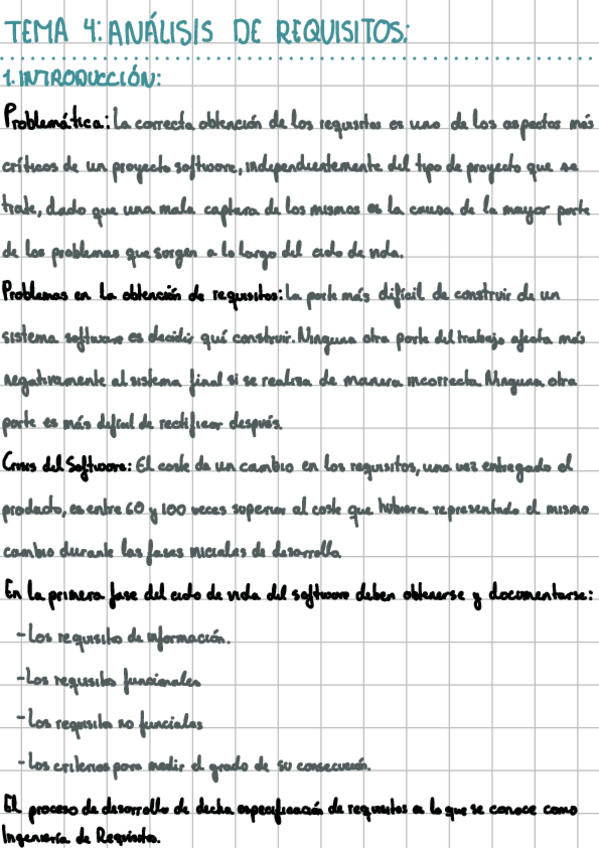 TEMA 4: ANÁLISIS DE REQUISITOS:
1. INTRODUCCIÓN:
Problemática: La correcta obtención de los requisitos es uno de los aspectos más
críticos de un proyecto software, independientemente del tipo de proyecto que se
trate, dado que una mala captura de los mismos es la causa de la mayor parte
de los problemas que surgen a lo largo del ciclo de vida.
Problemas en la obtención de requisitos: La parte más difícil de construir de un
sistema software es decidir qué construir. Ninguna otra parte del trabajo afecta más
negativamente al sistema final si se realiza de manera incorrecta. Ninguna otra
parte es más difícil de rectificar después.
Crisis del Software: El coste de un cambio en los requisitos, una vez entregado el
producto, es entre 60 y 100 veces superior al coste que hubiera representado el mismo
cambio durante las fases iniciales de desarrollo.
En la primera fase del ciclo de vida del software deben obtenerse y documentarse:
- Los requisito de información.
- Los requisitos funcionales
- Los requisito no funciales
- Los criterios para medir el grado de su consecución.
El proceso de desarrollo de decha especificación de requisitos es lo que se conoce como
Ingeniería de Requisitos.